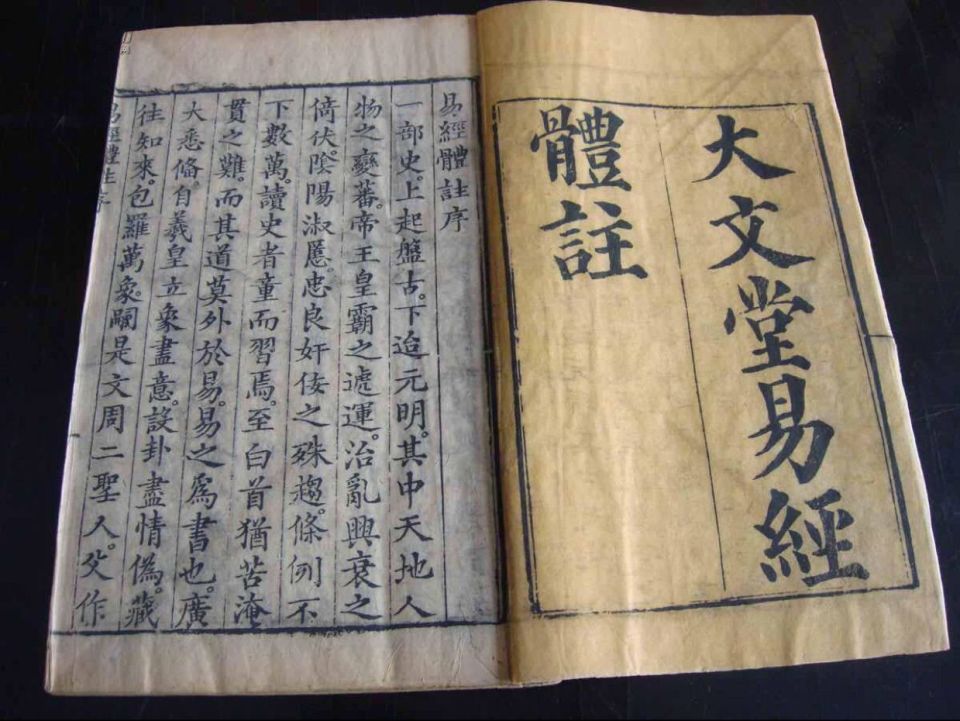 大文堂易經
體註
易經體註序
一部史。上起盤古。下迨元明。其中天地人
物之變蕃。帝王皇霸之遞運。治亂興衰之
倚伏。陰陽淑慝。忠良奸佞之殊趨。條例不
下數萬。讀史者童而習焉。至白首猶苦淹
貫之難。而其道莫外於易。易之爲書也。廣
大悉備。自羲皇立象盡意。設卦盡情僞。藏
往知來。包羅萬象。嗣是文周二聖人。爻作
易經體註序